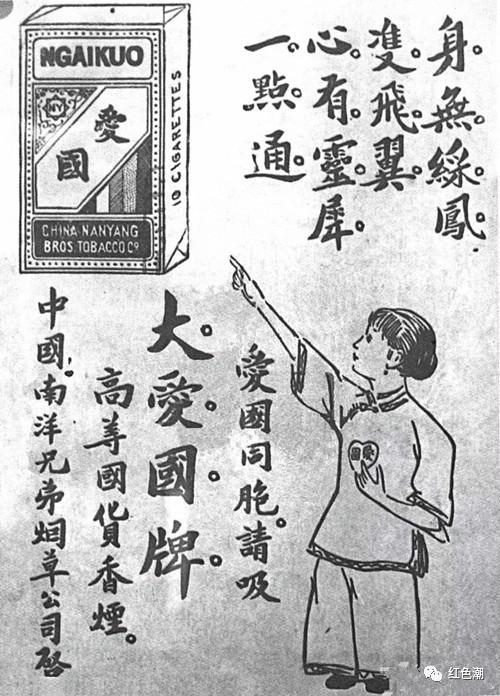 NGAIKUO
NY
愛
國
CHINA NANYANG
BROS. TOBACCO Cº
10 CIGARETTES
身無綵鳳
雙飛翼
心有靈犀
一點通
愛國同胞請吸
大愛國牌
高等國貨香煙
中國南洋兄弟烟草公司啓
國愛
红色潮